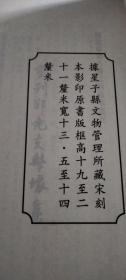 據星子縣文物管理所藏宋刻
本影印原書版框高十九至二
十一釐米寬十三·五至十四
釐米